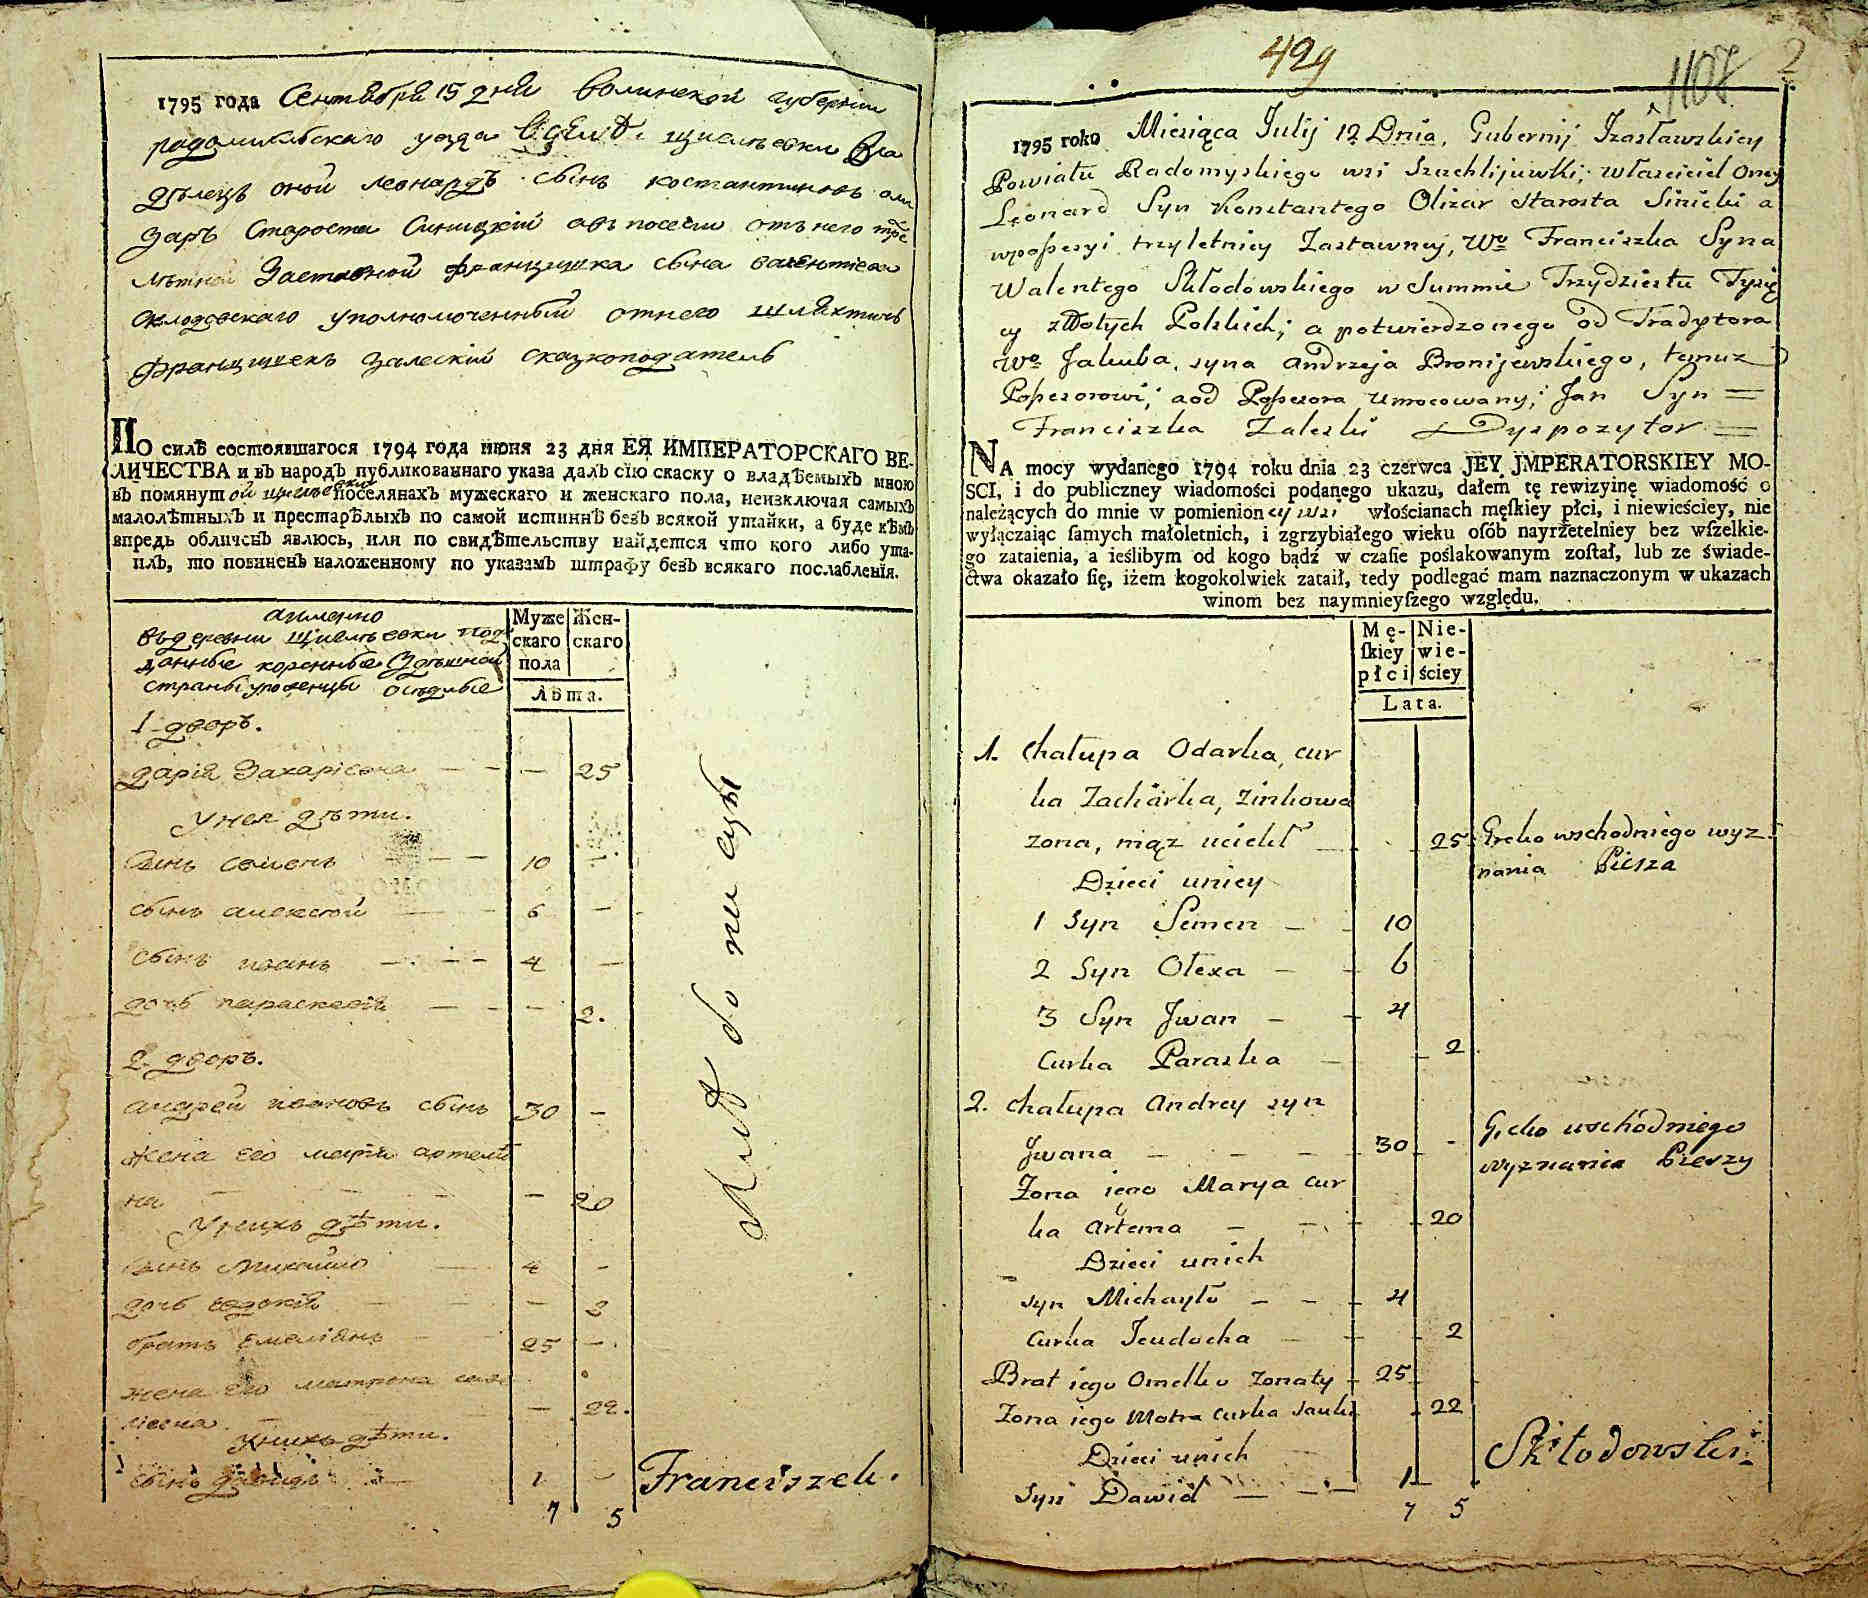 1795 года Сентября 15 дня волинской губернии
радомисльскаго уезда щиелъевки вла
дѣлецъ оной леонардъ сынъ костантиновъ оли
заръ Староста Синицкій авъ посесіи отъ него трїе
лѣтной Заставной францишка сына валентіева
склодовскаго уполномоченный отнего шляхтичъ
францишекъ залескій сказкоподатель
ПО силѣ состоявшагося 1794 года июня 23 дня ЕЯ ИМПЕРАТОРСКАГО ВЕ-
ЛИЧЕСТВА и въ народъ публикованнаго указа далъ сїю скаску о владѣемыхъ мною
въ помянутой поселянахъ мужескаго и женскаго пола, неизключая самыхъ
малолѣтныхъ и престарѣлыхъ по самой истиннѣ безъ всякой утайки, а буде кѣмъ
впредь обличенъ явлюсь, или по свидѣтельству найдется что кого либо ута-
илъ, то повиненъ наложенному по указамъ штрафу безъ всякаго послабленїя.
аименно
въдеревни щиелъевки под
данные коренные здѣшной
страны уроженцы осѣдлые
Муже
скаго
пола
Жен-
скаго
Лѣта.
1 дворъ.
дарія Захаріевна — — — 25
Унея дѣти.
Сынъ семенъ — — — 10 —
сынъ алексѣй — — 6 —
сынъ иванъ — — — 4 —
дочь параскевія — — — 2.
2 дворъ.
андрей ивановъ сынъ 30 —
жена его марія артемо
на — — — — 20
Унихъ дѣти.
сынъ михайло — 4 —
дочь евдокія — — — 2
братъ емеліянъ — 25 —
жена его матрона сав
ліевна — — 22.
Унихъ дѣти.
сынъ давидъ — 1 —
7 5
Franciszek.
429
1108
2
1795 roku Miesiąca Julij 12 Dnia, Gubernij Izasławskiey
Powiatu Radomyskiego wsi Szachlijuwki; właściciel oney
Leonard Syn Konstantego Olizar Starosta Sinicki a
wpossesyi trzyletniey Zastawney, Wo Franciszka Syna
Walentego Skłodowskiego w Summie Trzydziestu Tysię
cy złłotych Polskich; a potwierdzonego od Tradytora
Wo Jakuba, syna Andrzeja Bronijewskiego, temuz
Possesorowi; aod Possesora umocowany; Jan Syn =
Franciszka Zaleski Dyspozytor =
NA mocy wydanego 1794 roku dnia 23 czerwca JEY JMPERATORSKIEY MO-
SCI, i do publiczney wiadomości podanego ukazu, dałem tę rewizyinę wiadomość o
należących do mnie w pomienioney wsi włościanach męſkiey płci, i niewieściey, nie
wyłączaiąc ſamych małoletnich, i zgrzybiałego wieku oſób nayrżetelniey bez wſzelkie-
go zataienia, a ieślibym od kogo bądź w czaſie poślakowanym zoſtał, lub ze świade-
ctwa okazało ſię, iżem kogokolwiek zataił, tedy podlegać mam naznaczonym w ukazach
winom bez naymnieyſzego względu.
Mę-
ſkiey
płci
Nie-
wie-
ściey
Lata.
1. Chałupa Odarka, cur
ka Zacharka, Zinkowa
zona, mąz uciekł — 25 Greko wschodniego wyz
nania Piesza
Dzieci uniey
1 Syn Semen — — 10
2 Syn Olexa — — 6
3 Syn Jwan — — 4
Curka Paraska — — 2
2. Chałupa Andrey syn
Jwana — — — 30 - Greko wschodniego
wyznania Pieszy
Zona iego Marya cur
ka Artema — — — 20
Dzieci unich
Syn Michayło — — — 4
Curka Jeudocha — — — 2
Brat iego Omelko zonaty — 25
Zona iego Motra curka Sauki — 22
Dzieci unich
Syn Dawid — — — 1
7 5
Skłodowski